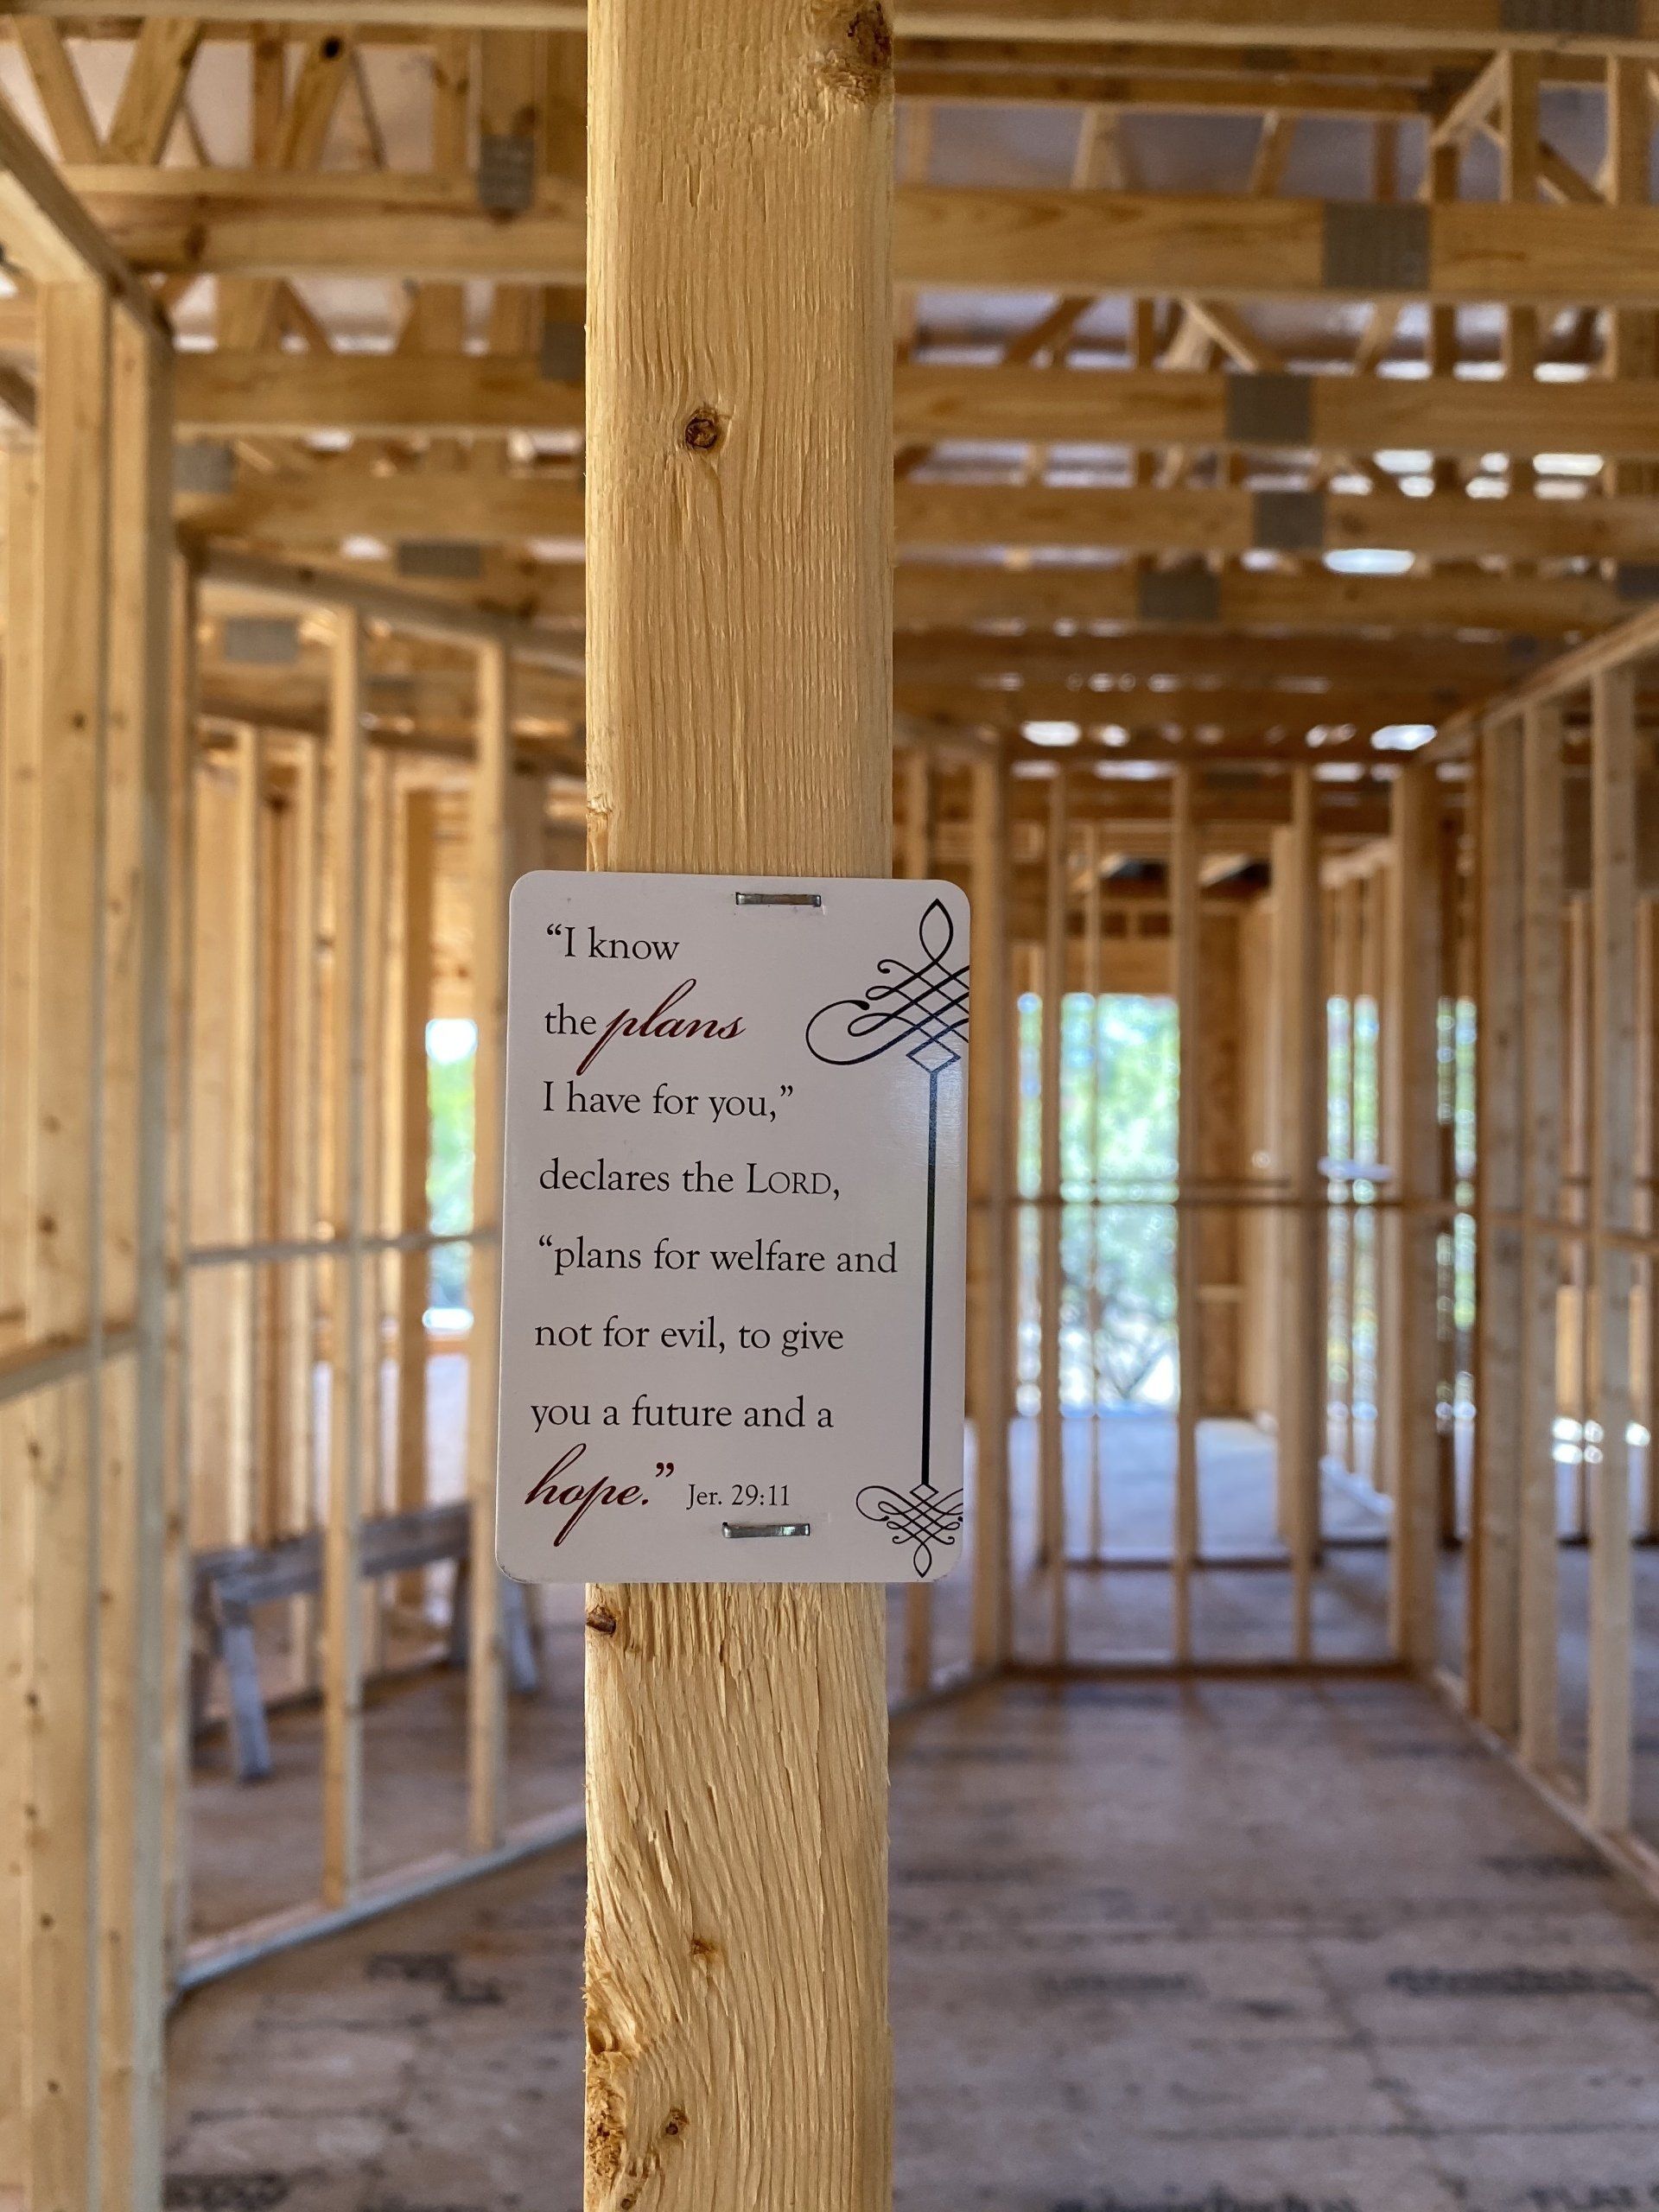 “I know
the plans
I have for you,”
declares the LORD,
“plans for welfare and
not for evil, to give
you a future and a
hope.” Jer. 29:11